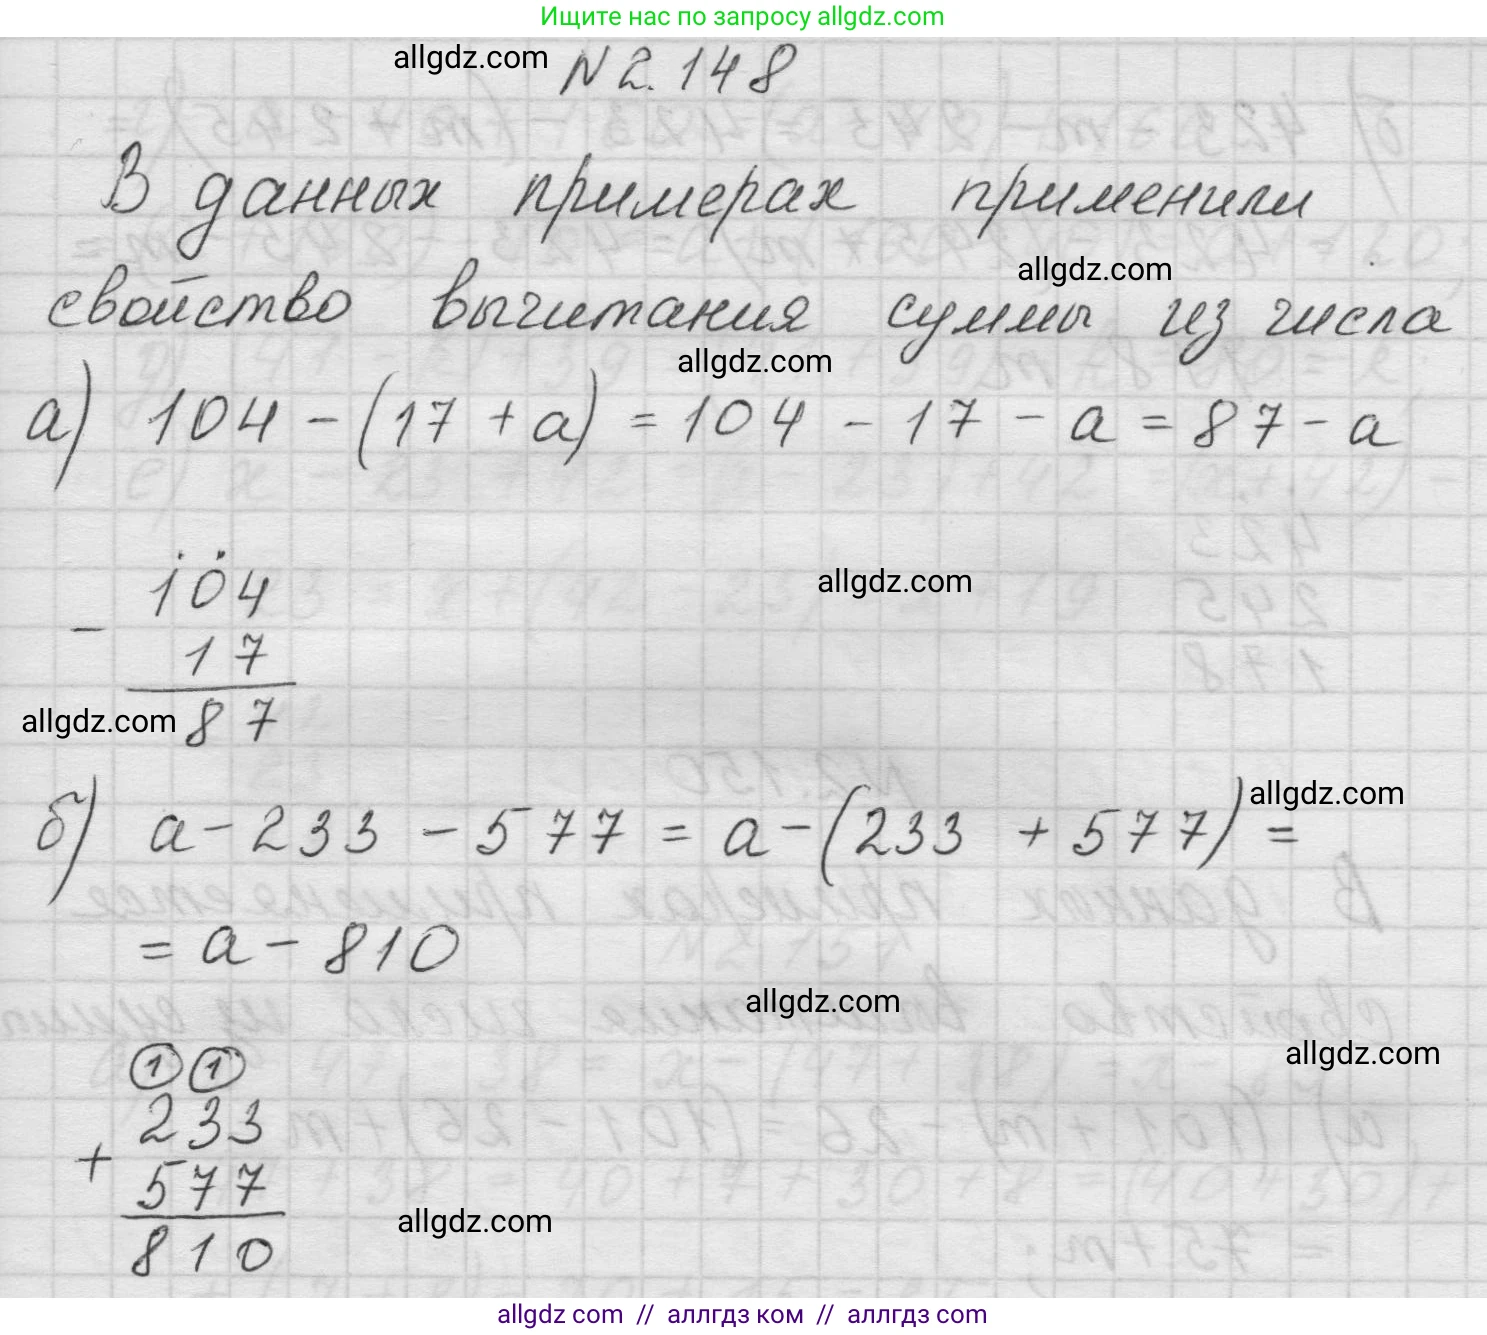 Ищите нас по запросу allgdz.com
allgdz.com
N 2.148
В данных примерах применили
allgdz.com
свойство вычитания суммы из числа
allgdz.com
а) 104 - (17 + а) = 104 - 17 - а = 87 - а
allgdz.com
104
- 17
87
allgdz.com
allgdz.com
б) а - 233 - 577 = а - (233 + 577) =
= а - 810
allgdz.com
allgdz.com
1 1
233
+ 577
810
allgdz.com
allgdz.com // аллгдз ком // аллгдз com